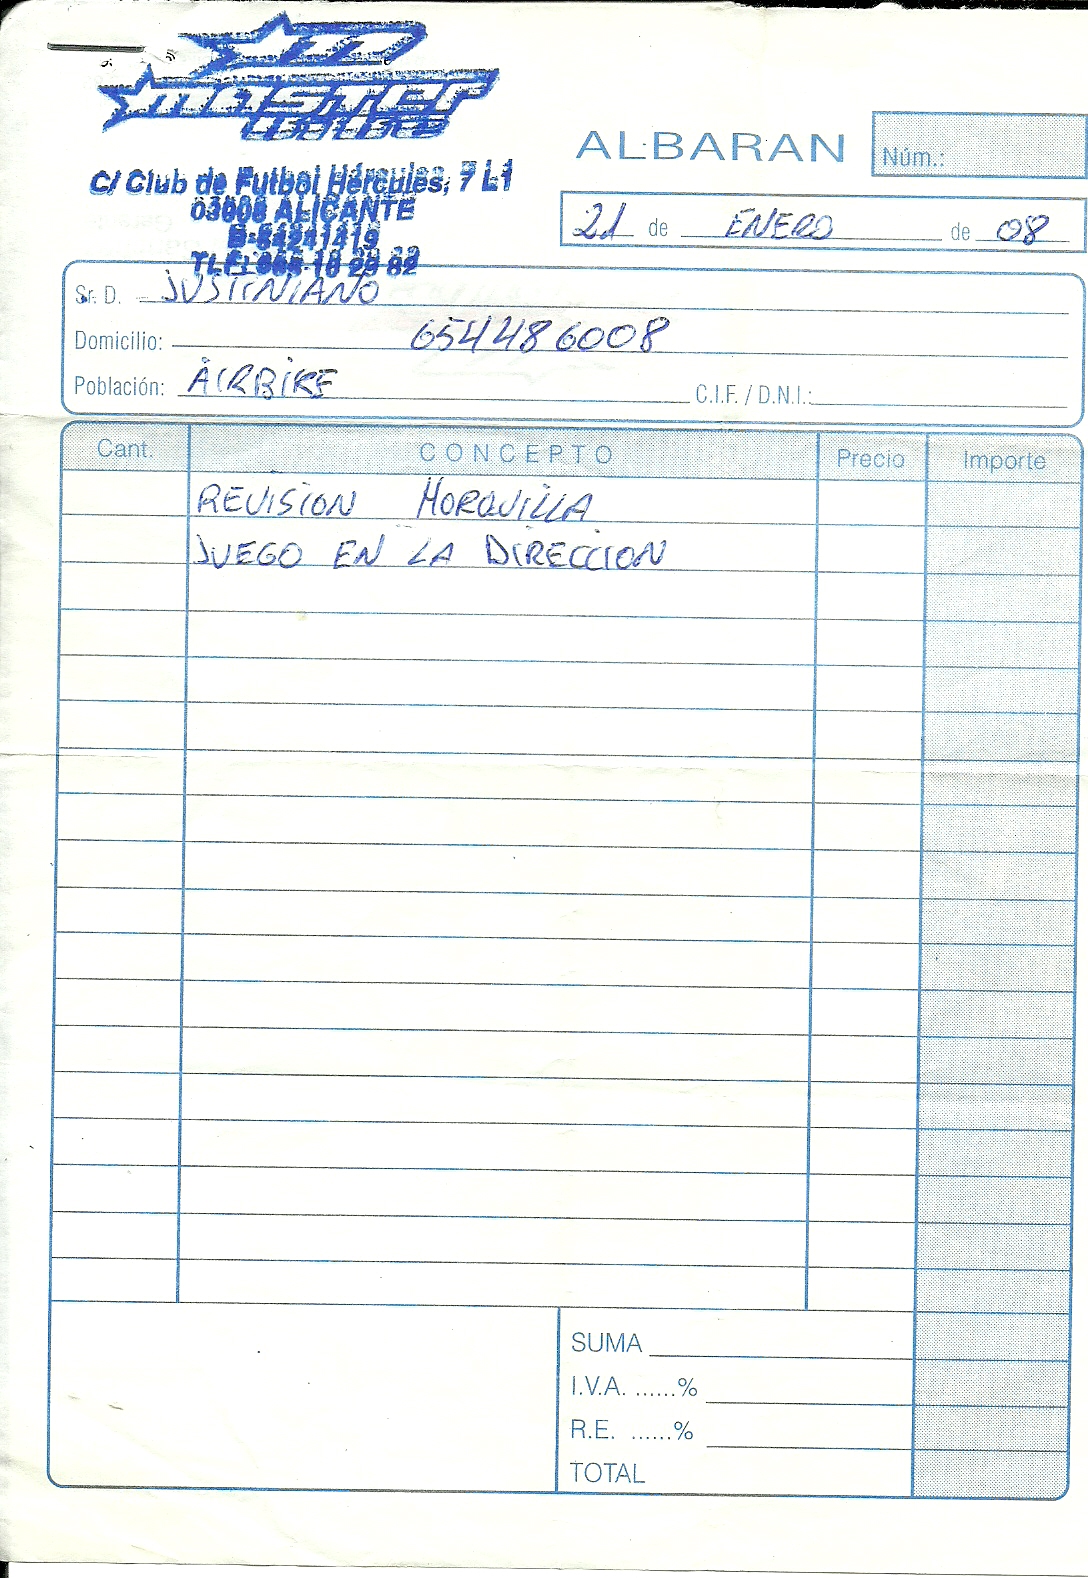 master
C/ Club de Futbol Hércules, 7 L1
03008 ALICANTE
B-54241419
ALBARAN
Núm.:
21 de ENERO de 08
Sr. D. JUSTINIANO
Domicilio: 654486008
Población: AIRBIKE C.I.F. / D.N.I.:
Cant. CONCEPTO Precio Importe
REVISION HORQUILLA
JUEGO EN LA DIRECCION
SUMA
I.V.A. ......%
R.E. ......%
TOTAL